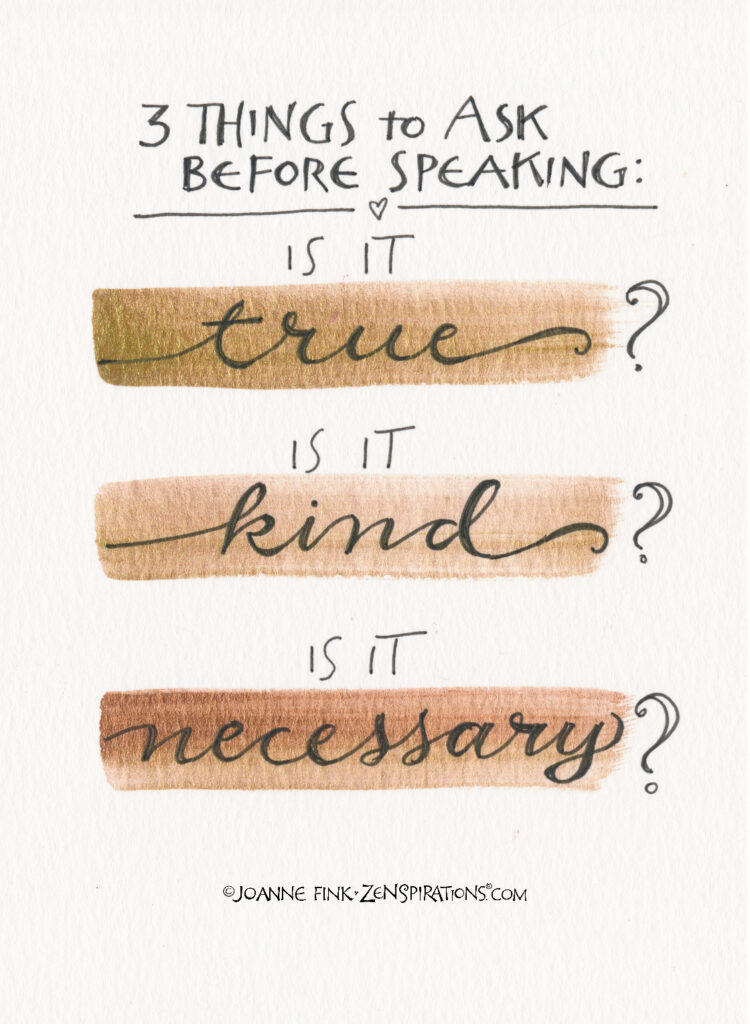 3 THINGS to ASK
BEFORE SPEAKING:
IS IT
true?
IS IT
kind?
IS IT
necessary?
©JOANNE FINK ZENSPIRATIONS®.COM